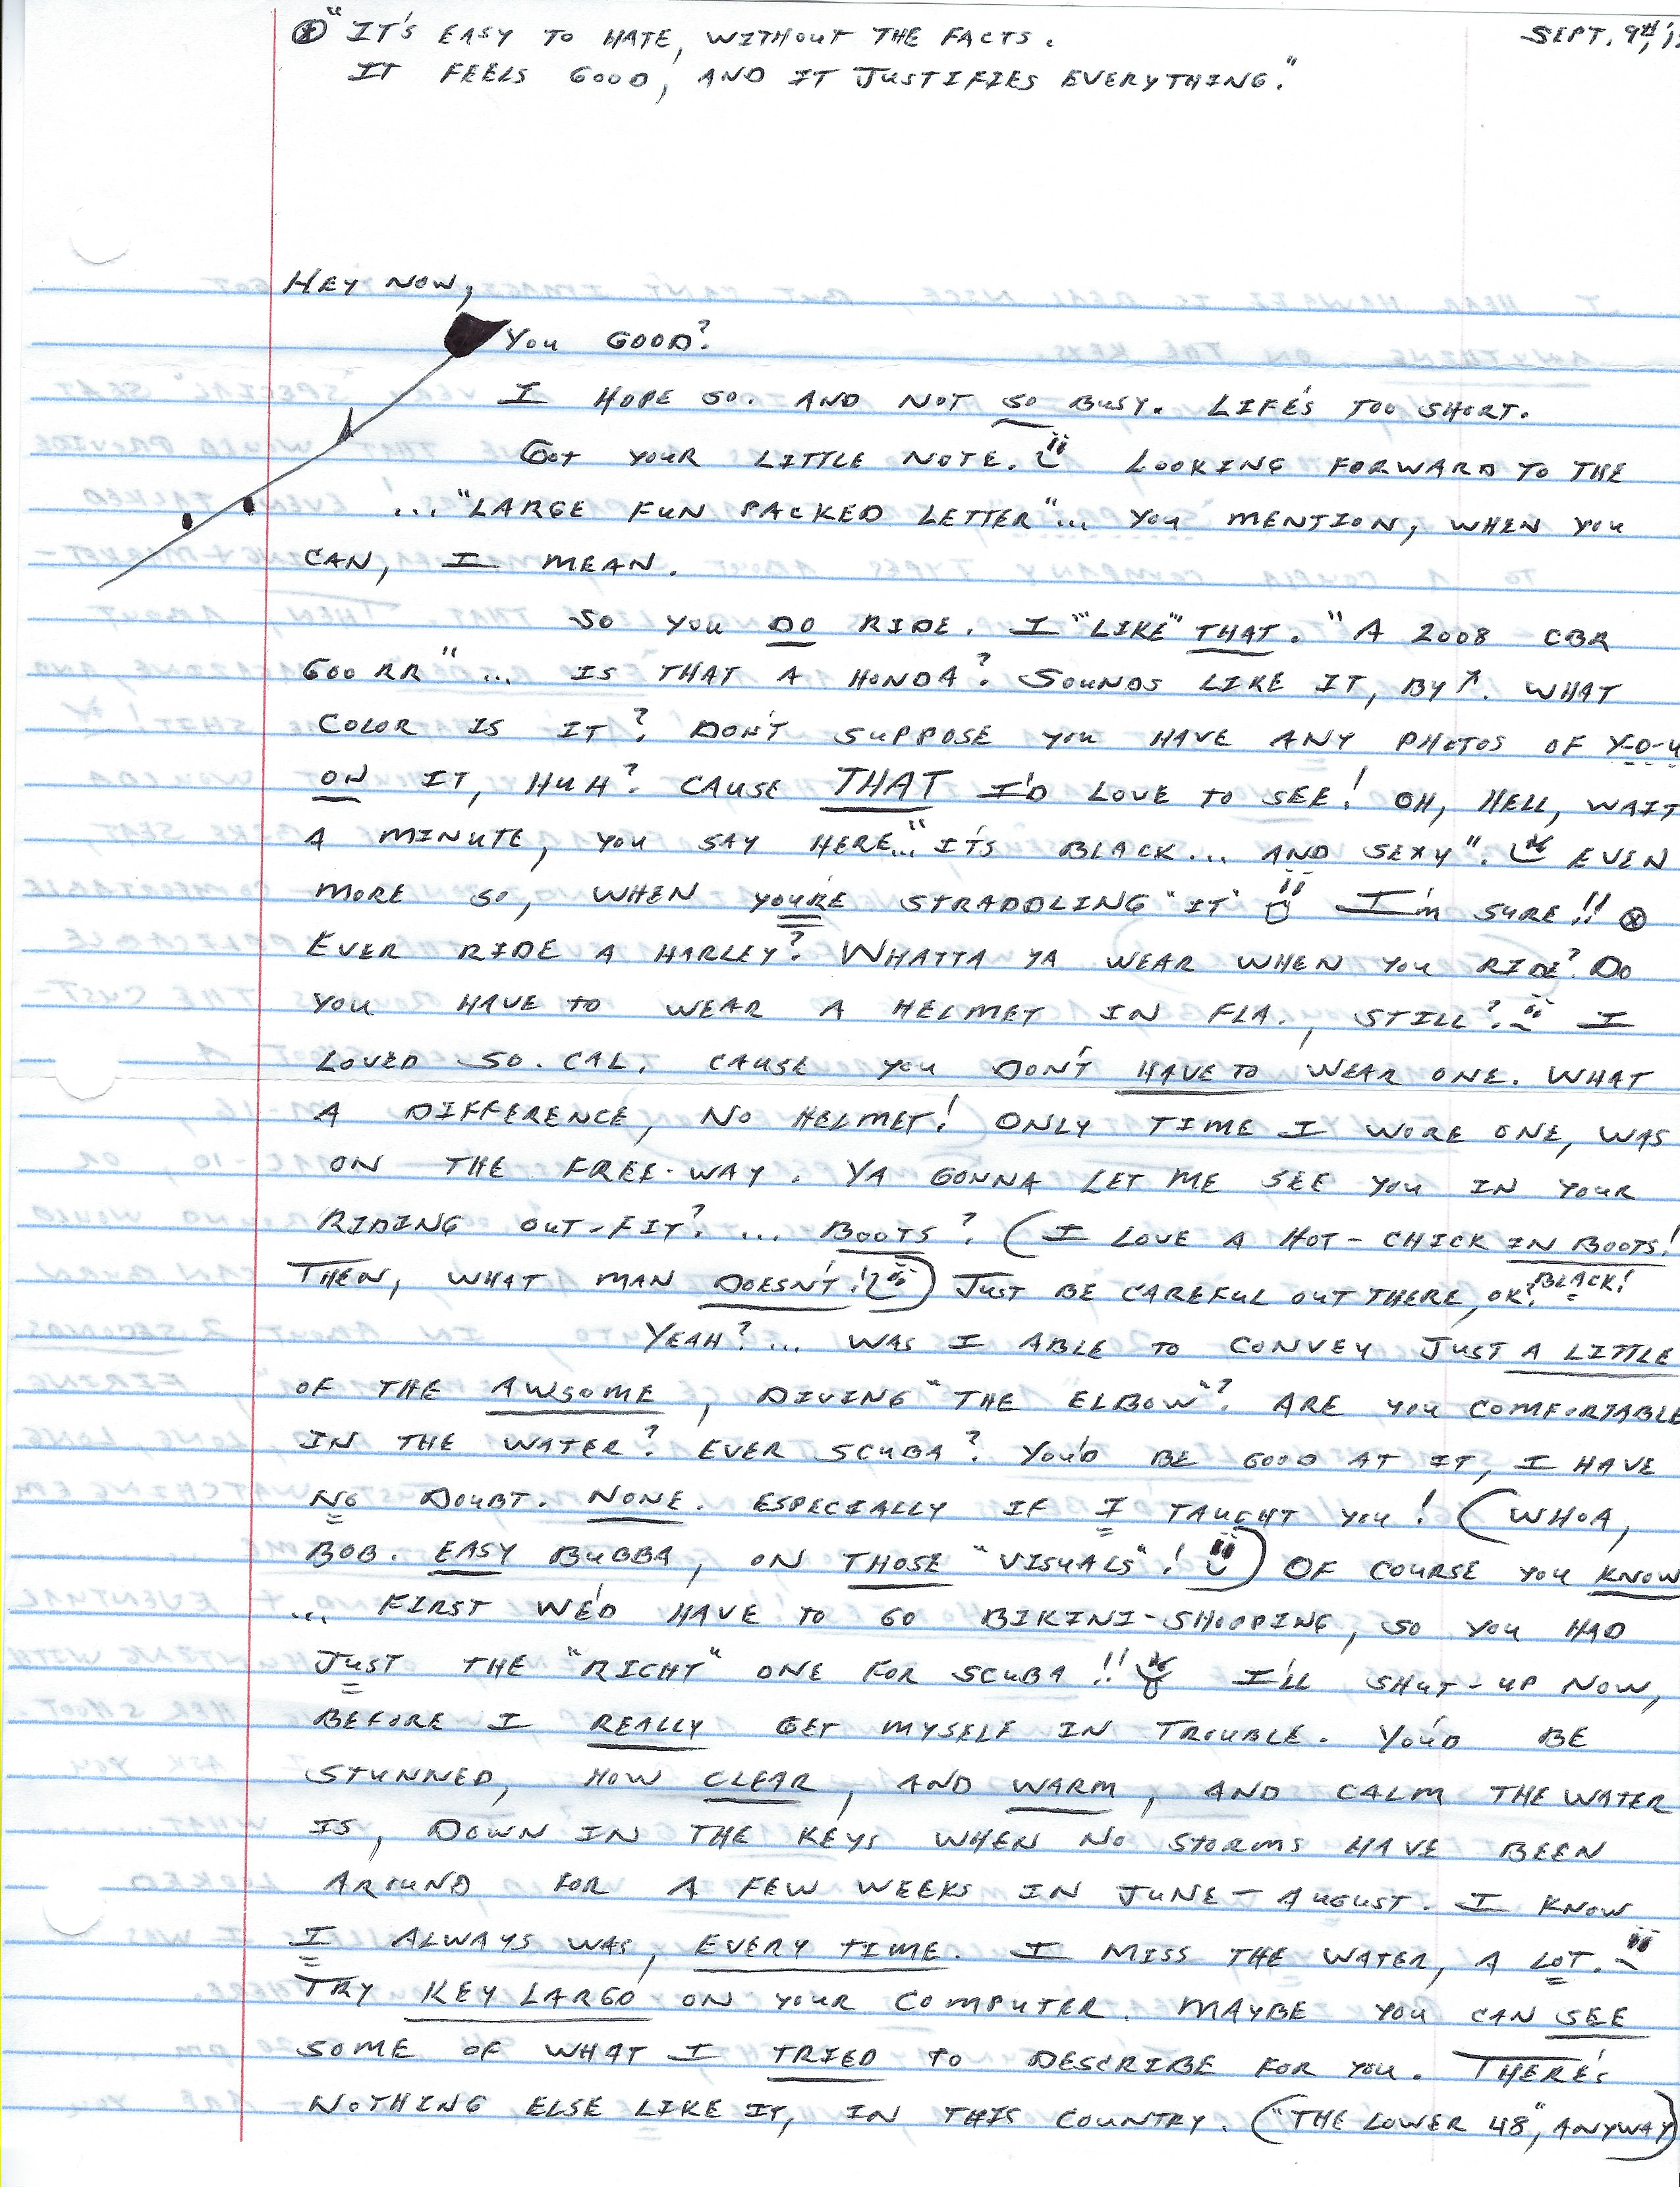 "IT'S EASY TO HATE, WITHOUT THE FACTS.
SEPT. 9TH,
IT FEELS GOOD, AND IT JUSTIFIES EVERYTHING."
HEY NOW,
YOU GOOD?
I HOPE SO. AND NOT SO BUSY. LIFE'S TOO SHORT.
GOT YOUR LITTLE NOTE. LOOKING FORWARD TO THE
... "LARGE FUN PACKED LETTER"... YOU MENTION, WHEN YOU
CAN, I MEAN.
SO YOU DO RIDE. I "LIKE" THAT. "A 2008 CBR
600 RR" ... IS THAT A HONDA? SOUNDS LIKE IT, BY ↗. WHAT
COLOR IS IT? DON'T SUPPOSE YOU HAVE ANY PHOTOS OF Y-O-U
ON IT, HUH? CAUSE THAT I'D LOVE TO SEE! OH, HELL, WAIT
A MINUTE, YOU SAY HERE..."IT'S BLACK... AND SEXY". EVEN
MORE SO, WHEN YOU'RE STRADDLING "IT" I'M SURE!! ⊗
EVER RIDE A HARLEY? WHATTA YA WEAR WHEN YOU RIDE? DO
YOU HAVE TO WEAR A HELMET IN FLA., STILL? I
LOVED SO. CAL. CAUSE YOU DON'T HAVE TO WEAR ONE. WHAT
A DIFFERENCE, NO HELMET! ONLY TIME I WORE ONE, WAS
ON THE FREE-WAY. YA GONNA LET ME SEE YOU IN YOUR
RIDING OUT-FIT? ... BOOTS? (I LOVE A HOT-CHICK IN BOOTS!
BLACK!
THEN, WHAT MAN DOESN'T!) JUST BE CAREFUL OUT THERE, OK?
YEAH?... WAS I ABLE TO CONVEY JUST A LITTLE
OF THE AWSOME, DIVING "THE ELBOW"? ARE YOU COMFORTABLE
IN THE WATER? EVER SCUBA? YOU'D BE GOOD AT IT, I HAVE
NO DOUBT. NONE. ESPECIALLY IF I TAUGHT YOU! (WHOA,
BOB. EASY BUBBA, ON THOSE "VISUALS"!) OF COURSE YOU KNOW
... FIRST WE'D HAVE TO GO BIKINI-SHOPPING, SO YOU HAD
JUST THE "RIGHT" ONE FOR SCUBA!! I'LL SHUT-UP NOW,
BEFORE I REALLY GET MYSELF IN TROUBLE. YOU'D BE
STUNNED, HOW CLEAR, AND WARM, AND CALM THE WATER
IS, DOWN IN THE KEYS WHEN NO STORMS HAVE BEEN
AROUND FOR A FEW WEEKS IN JUNE - AUGUST. I KNOW
I ALWAYS WAS, EVERY TIME. I MISS THE WATER, A LOT.
TRY KEY LARGO ON YOUR COMPUTER. MAYBE YOU CAN SEE
SOME OF WHAT I TRIED TO DESCRIBE FOR YOU. THERE'S
NOTHING ELSE LIKE IT, IN THIS COUNTRY. ("THE LOWER 48", ANYWAY)